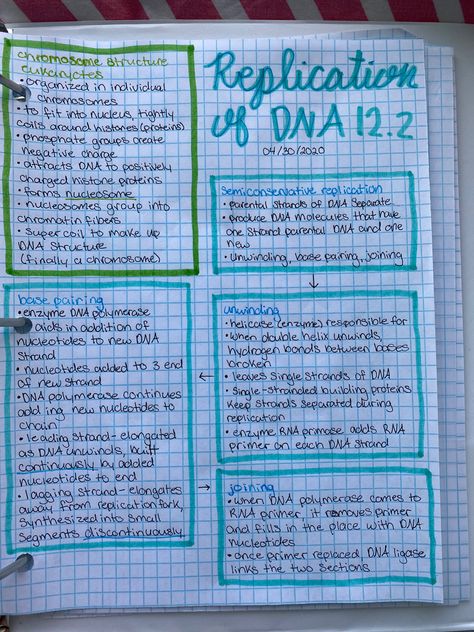 chromosome structure
eukaryotes
• organized in individual
chromosomes
• to fit into nucleus, tightly
coils around histones (proteins)
• phosphate groups create
negative charge
• attracts DNA to positively
charged histone proteins
• forms nucleosome
• nucleosomes group into
chromatin fibers
• super coil to make up
DNA structure
(finally a chromosome)
Replication
of DNA 12.2
04/30/2020
semiconservative replication
• parental strands of DNA separate
• produce DNA molecules that have
one strand parental DNA and one
new
• unwinding, base pairing, joining
↓
unwinding
• helicase (enzyme) responsible for
• when double helix unwinds,
hydrogen bonds between bases
broken
• leaves single strands of DNA
• single-stranded building proteins
keep strands separated during
replication
• enzyme RNA primase adds RNA
primer on each DNA strand
←
base pairing
• enzyme DNA polymerase
aids in addition of
nucleotides to new DNA
strand
• nucleotides added to 3 end
of new strand
• DNA polymerase continues
adding new nucleotides to
chain
• leading strand - elongated
as DNA unwinds, built
continuously by added
nucleotides to end
• lagging strand - elongates
away from replication fork,
synthesized into small
segments discontinuously
→
joining
• when DNA polymerase comes to
RNA primer, it removes primer
and fills in the place with DNA
nucleotides
• once primer replaced, DNA ligase
links the two sections